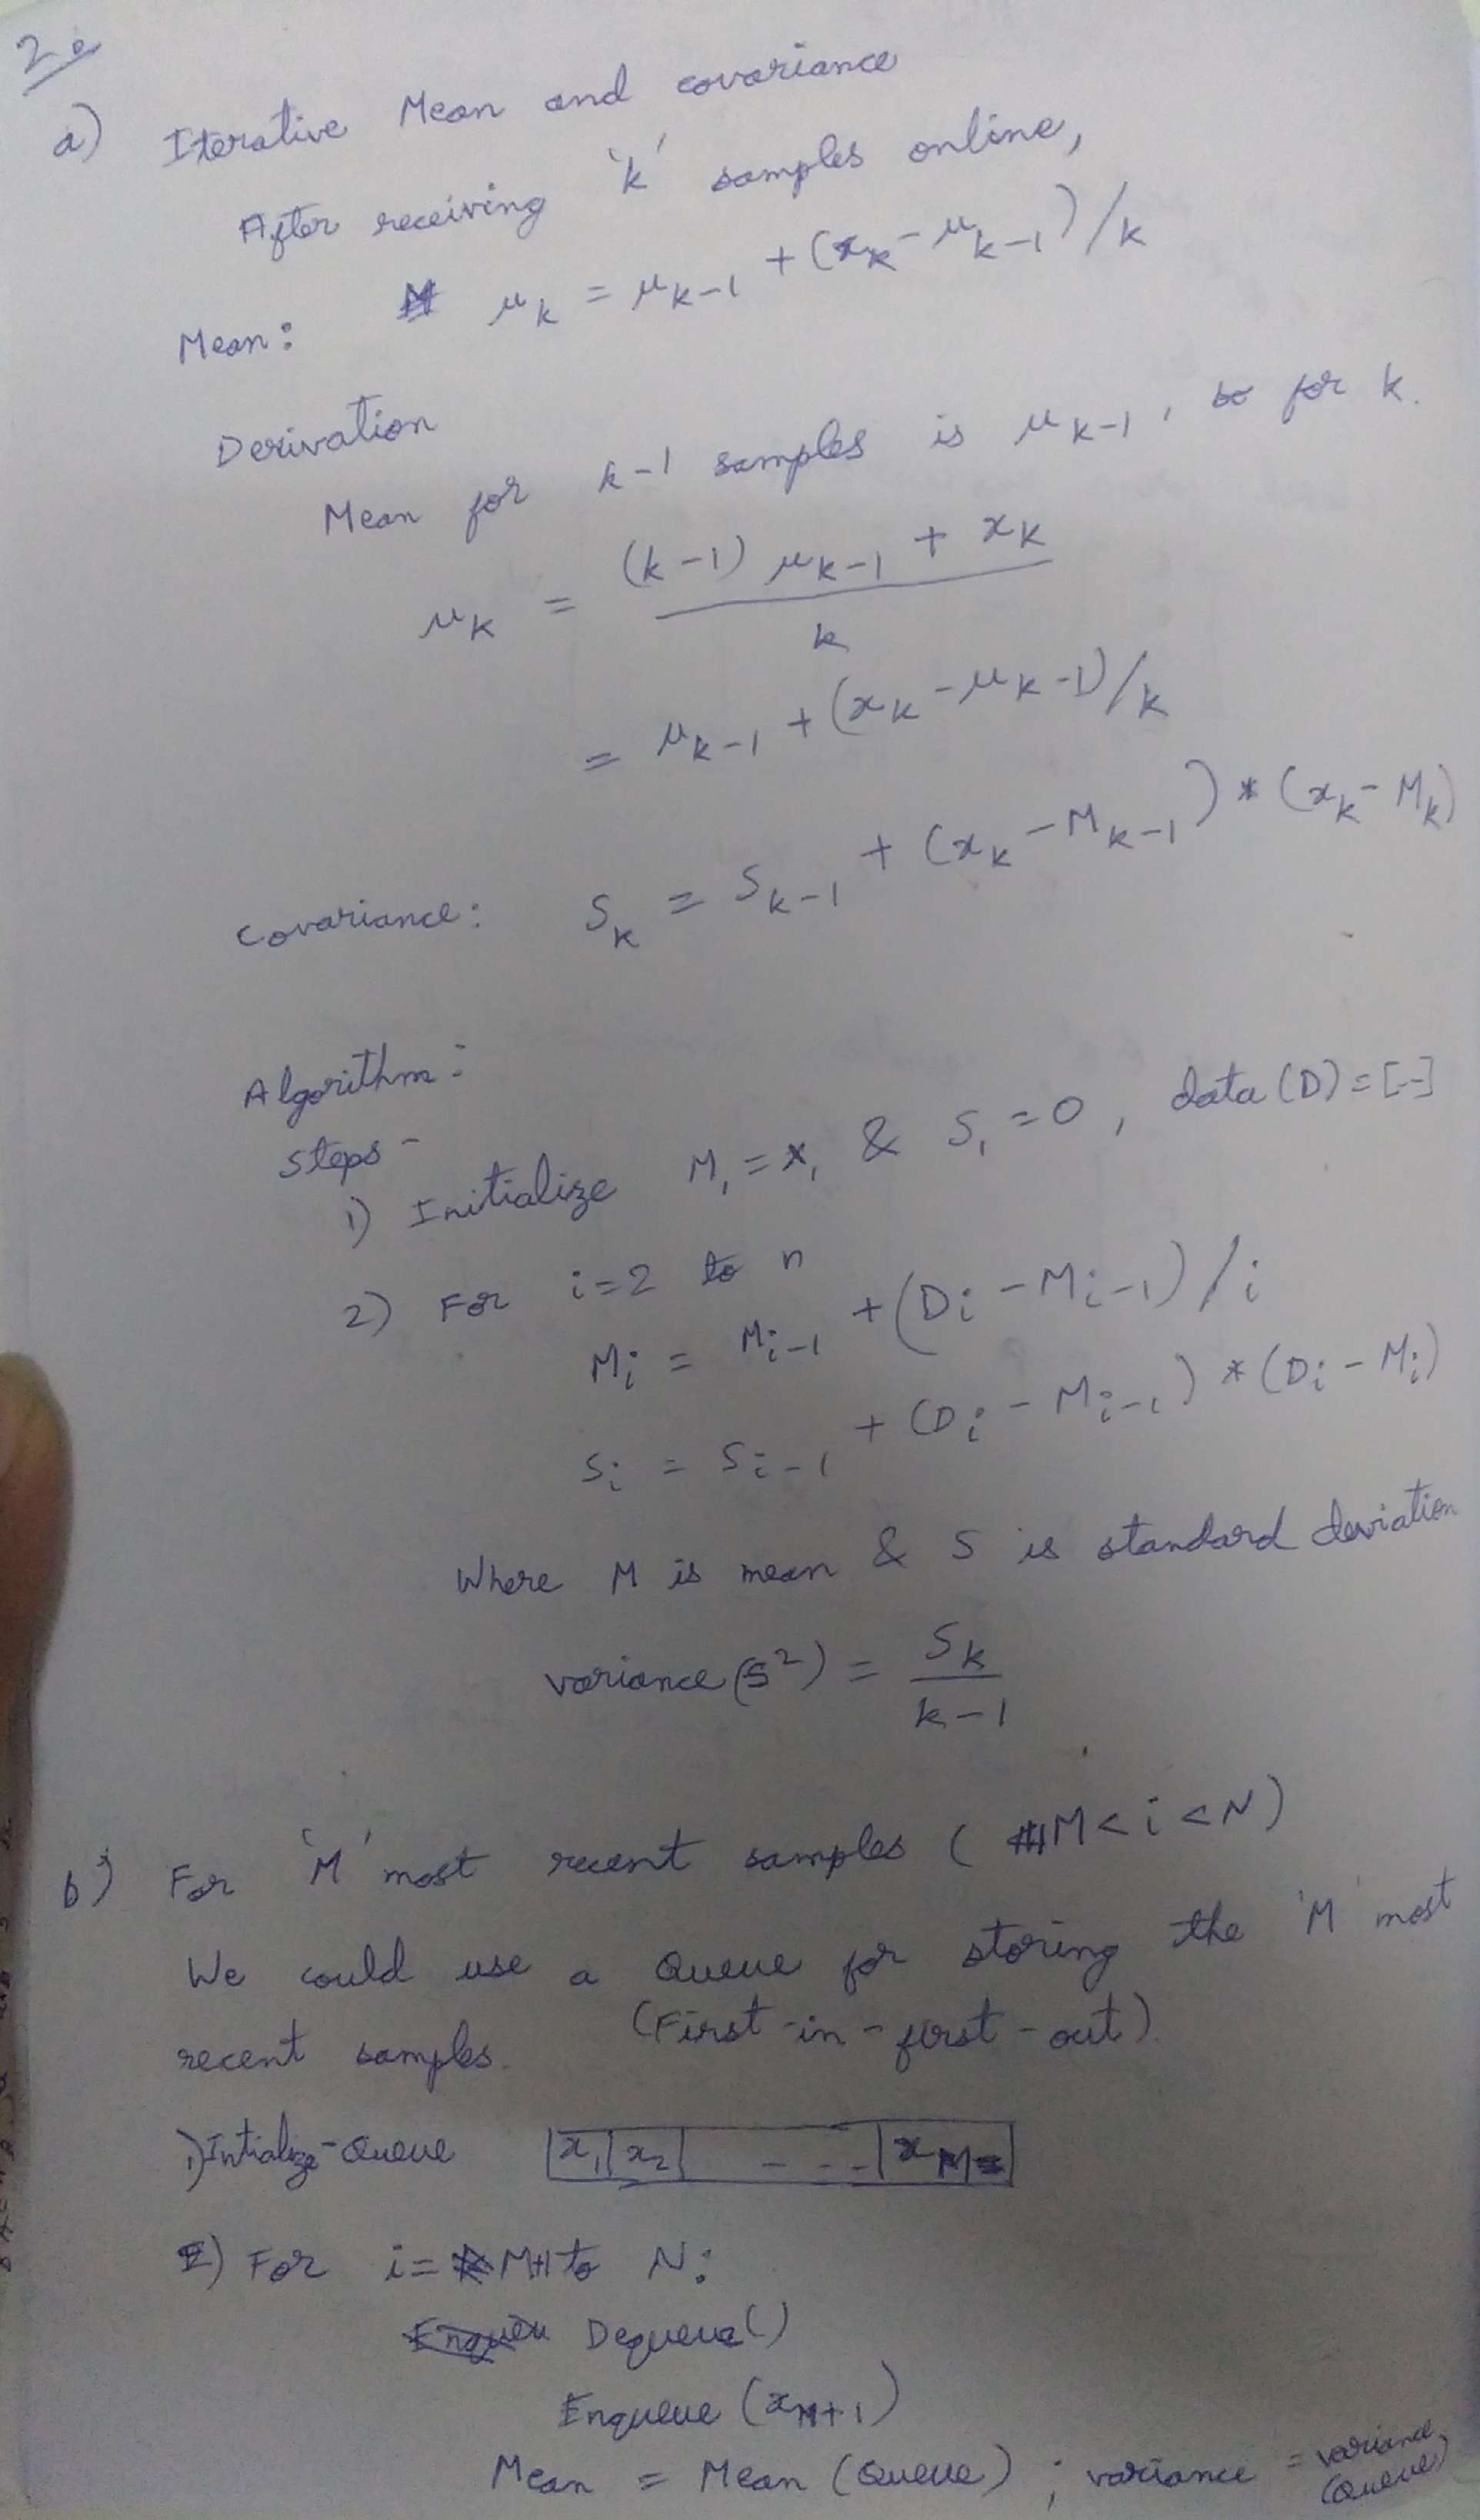 2.
a) Iterative Mean and covariance
After receiving 'k' samples online,
Mean: μ_k = μ_{k-1} + (x_k - μ_{k-1})/k
Derivation
Mean for k-1 samples is μ_{k-1}, so for k.
μ_k = ((k-1) μ_{k-1} + x_k) / k
= μ_{k-1} + (x_k - μ_{k-1})/k
Covariance: S_k = S_{k-1} + (x_k - M_{k-1}) * (x_k - M_k)
Algorithm:
Steps -
1) Initialize M_1 = x_1 & S_1 = 0, data (D) = [--]
2) For i=2 to n
M_i = M_{i-1} + (D_i - M_{i-1}) / i
S_i = S_{i-1} + (D_i - M_{i-1}) * (D_i - M_i)
Where M is mean & S is standard deviation
variance (S^2) = S_k / (k-1)
b) For 'M' most recent samples ( M < i < N )
We could use a Queue for storing the 'M' most
recent samples. (First-in-first-out).
1) Intialize-Queue x_1 | x_2 | - - - - | x_M
2) For i = M+1 to N:
Dequeue()
Enqueue (x_{M+1})
Mean = Mean (Queue) ; variance = variance (Queue)